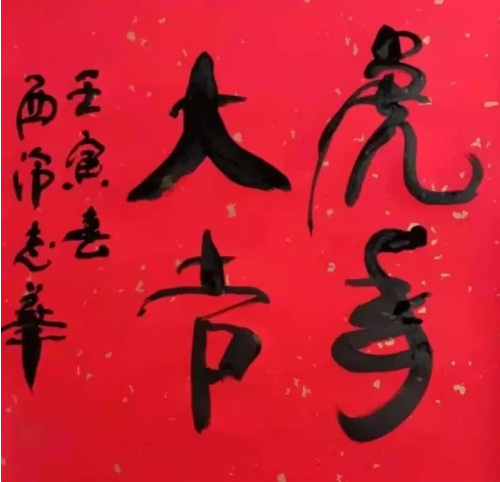 虎年
大吉
壬寅春
西泠志華